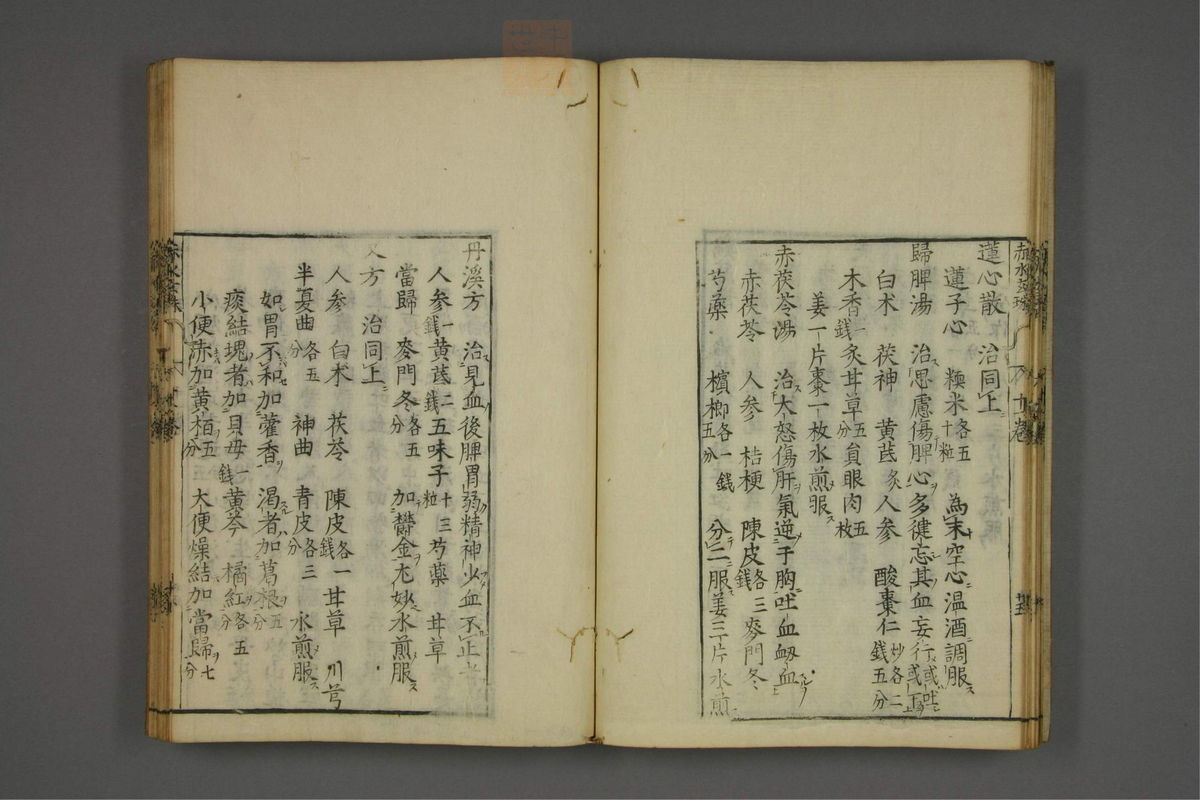 赤水玄珠 十卷
蓮心散 治同上
蓮子心 糯米各五十粒 為末空心温酒調服
歸脾湯 治思慮傷脾心多健忘其血妄行或吐或下
白朮 茯神 黄芪炙 人参 酸棗仁炒各二錢五分
木香一錢 炙甘草五分 員眼肉五枚
姜一片棗一枚水煎服
赤茯苓湯 治大怒傷肝氣逆于胸吐血衂血
赤茯苓 人参 桔梗 陳皮各三錢 麥門冬
芍藥 檳榔各一錢五分 分二服姜三片水煎
丹溪方 治見血後脾胃弱精神少血不止者
人参一錢 黄芪二錢 五味子十三粒 芍藥 甘草
當歸 麥門冬各五分 加鬱金尤妙水煎服
又方 治同上
人参 白朮 茯苓 陳皮各一錢 甘草 川芎
半夏曲各五分 神曲 青皮各三分 水煎服
如胃不和加藿香 渴者加葛根五分
痰結塊者加貝母一錢 黄芩 橘紅各五分
小便赤加黄栢五分 大便燥結加當歸七分